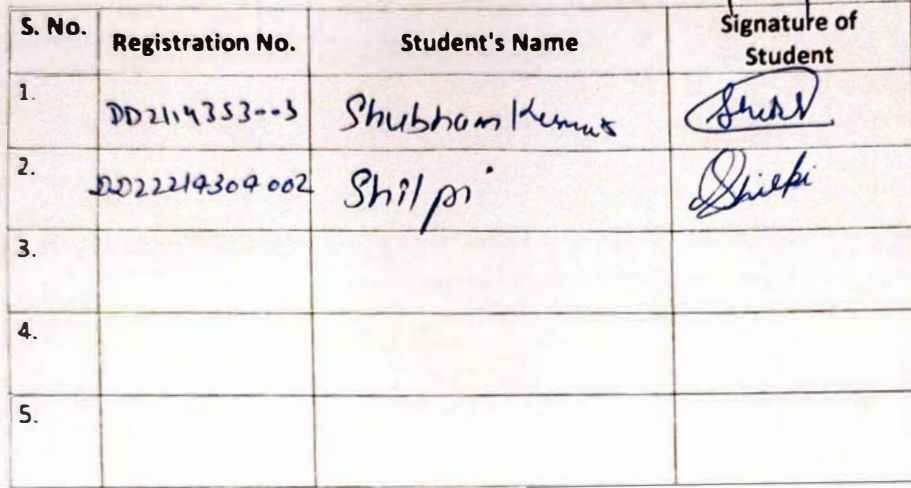 S. No. Registration No. Student's Name Signature of Student
1. Shubham Kumar
2. DD22214304002 Shilpi Shilpi
3.
4.
5.